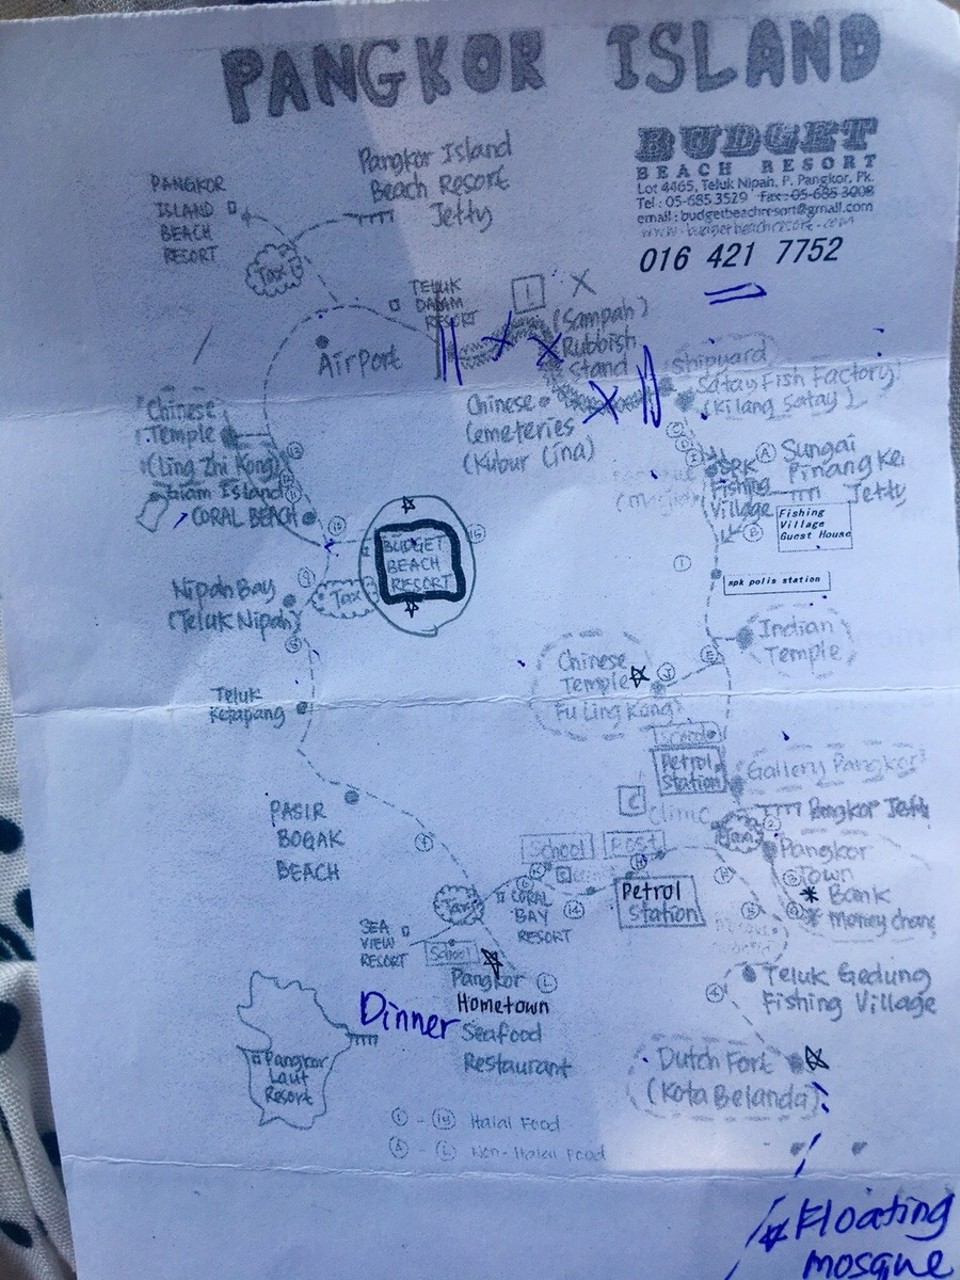 PANGKOR ISLAND
BUDGET
BEACH RESORT
Lot 4465, Teluk Nipah, P. Pangkor, Pk.
Tel : 05-685 3529 Fax : 05-685 3008
email : budgetbeachresort@gmail.com
www.budgetbeachresort.com
016 421 7752
Pangkor Island
Beach Resort
Jetty
PANGKOR
ISLAND
BEACH
RESORT
Taxi
TELUK
DALAM
RESORT
1
(Sampah)
Rubbish
Stand
Airport
Shipyard
Satay Fish Factory
(Kilang Satay)
Chinese
Cemeteries
(Kubur Cina)
Chinese
Temple
(Ling Zhi Kong)
Giam Island
CORAL BEACH
Sungai
Pinang Kecil
Jetty
SPK
Fishing
Village
Fishing
Village
Guest House
BUDGET
BEACH
RESORT
spk polis station
Nipah Bay
(Teluk Nipah)
Taxi
Indian
Temple
Chinese
Temple
Fu Ling Kong
Teluk
Ketapang
School
Petrol
Station
Gallery Pangkor
Clinic
Pangkor Jetty
PASIR
BOGAK
BEACH
Taxi
School
Post
Pangkor
Town
Bank
Money chang
Petrol
Station
CORAL
BAY
RESORT
Taxi
SEA
VIEW
RESORT
School
Pangkor
Hometown
Seafood
Restaurant
Dinner
Teluk Gedung
Fishing Village
Pangkor
Laut
Resort
Dutch Fort
(Kota Belanda)
Halal Food
Non-Halal Food
Floating
mosque